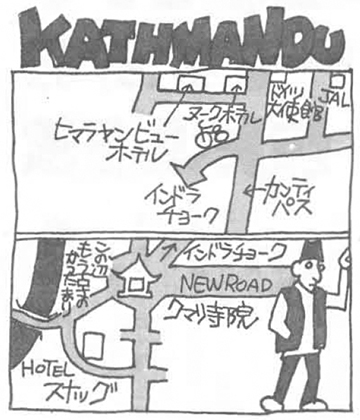 KATHMANDU
ヌークホテル
ドイツ
大使館
JAL
ヒマラヤンビュー
ホテル
インドラ
チョーク
カンティ
パス
インドラチョーク
この辺
NEW ROAD
クマリ寺院
HOTEL
スナッグ